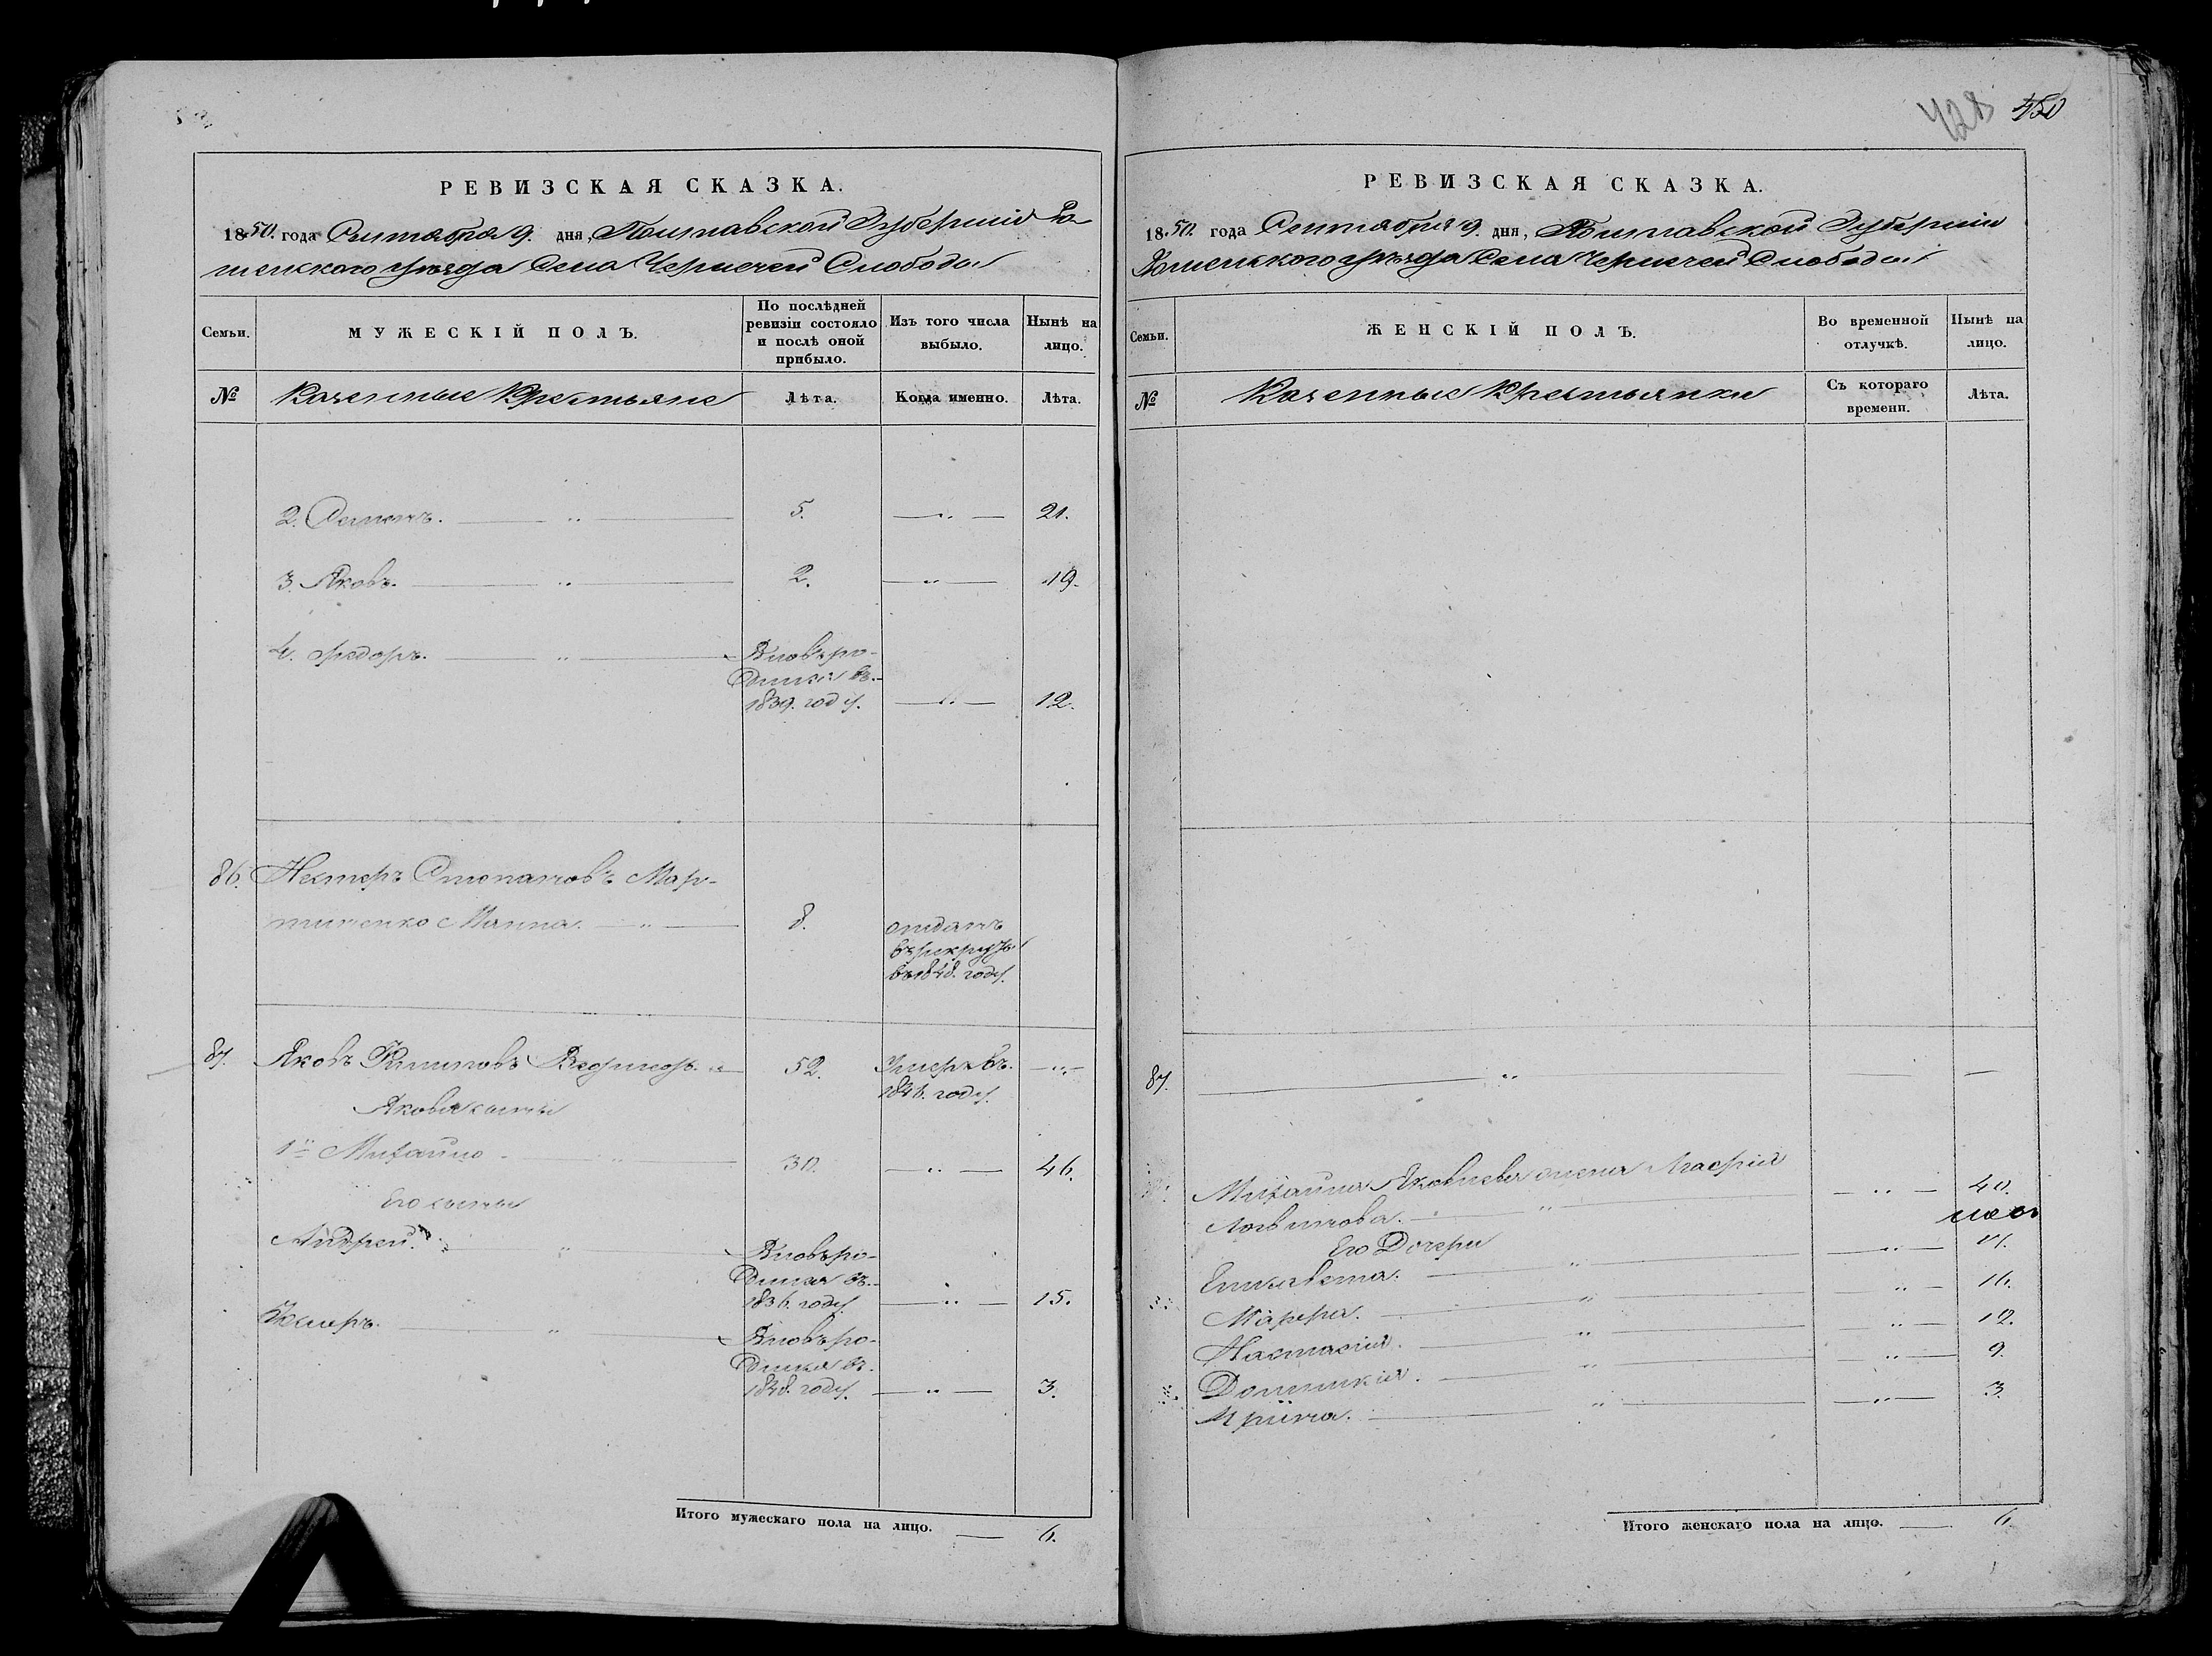 428 450
РЕВИЗСКАЯ СКАЗКА.
1850. года Сентября 9. дня, Полтавской Губернiи Ро-
менского уезда Села Чернечей Слободы
Семьи.
МУЖЕСКIЙ ПОЛЪ.
По послѣдней ревизiи состояло и послѣ оной прибыло.
Изъ того числа выбыло.
Нынѣ на лицо.
№
Казенные Крестьяне
Лѣта.
Когда именно.
Лѣта.
2. Семенъ. 5. 21.
3. Яковъ. 2. 19.
4. Федоръ. Вновь ро-
дился въ
1839. году. 12.
86. Нестеръ Степановъ Мар-
тиненко 8. отданъ
въ рекруты
въ 1848. году.
87. Яковъ 52. Умеръ въ
1846. году.
Якова сыны
1й Михайло 30. 46.
Его сыны
Андрей. Вновь ро-
дился въ
1836. году. 15.
Вновь ро-
дился въ
1848. году. 3.
Итого мужескаго пола на лицо. 6.
РЕВИЗСКАЯ СКАЗКА.
1850. года Сентября 9. дня, Полтавской Губернiи
Роменского уѣзда Села Чернечей Слободы
Семьи.
ЖЕНСКIЙ ПОЛЪ.
Во временной отлучкѣ.
Нынѣ на лицо.
№
Казенные Крестьянки
Съ котораго времени.
Лѣта.
87.
Михайла Яковлева жена 40.
Логвинова.
Его Дочери
Елисавета.
Марфа. 16.
Настасiя. 12.
Домникiя. 9.
Ирiина. 3.
Итого женскаго пола на лицо. 6.